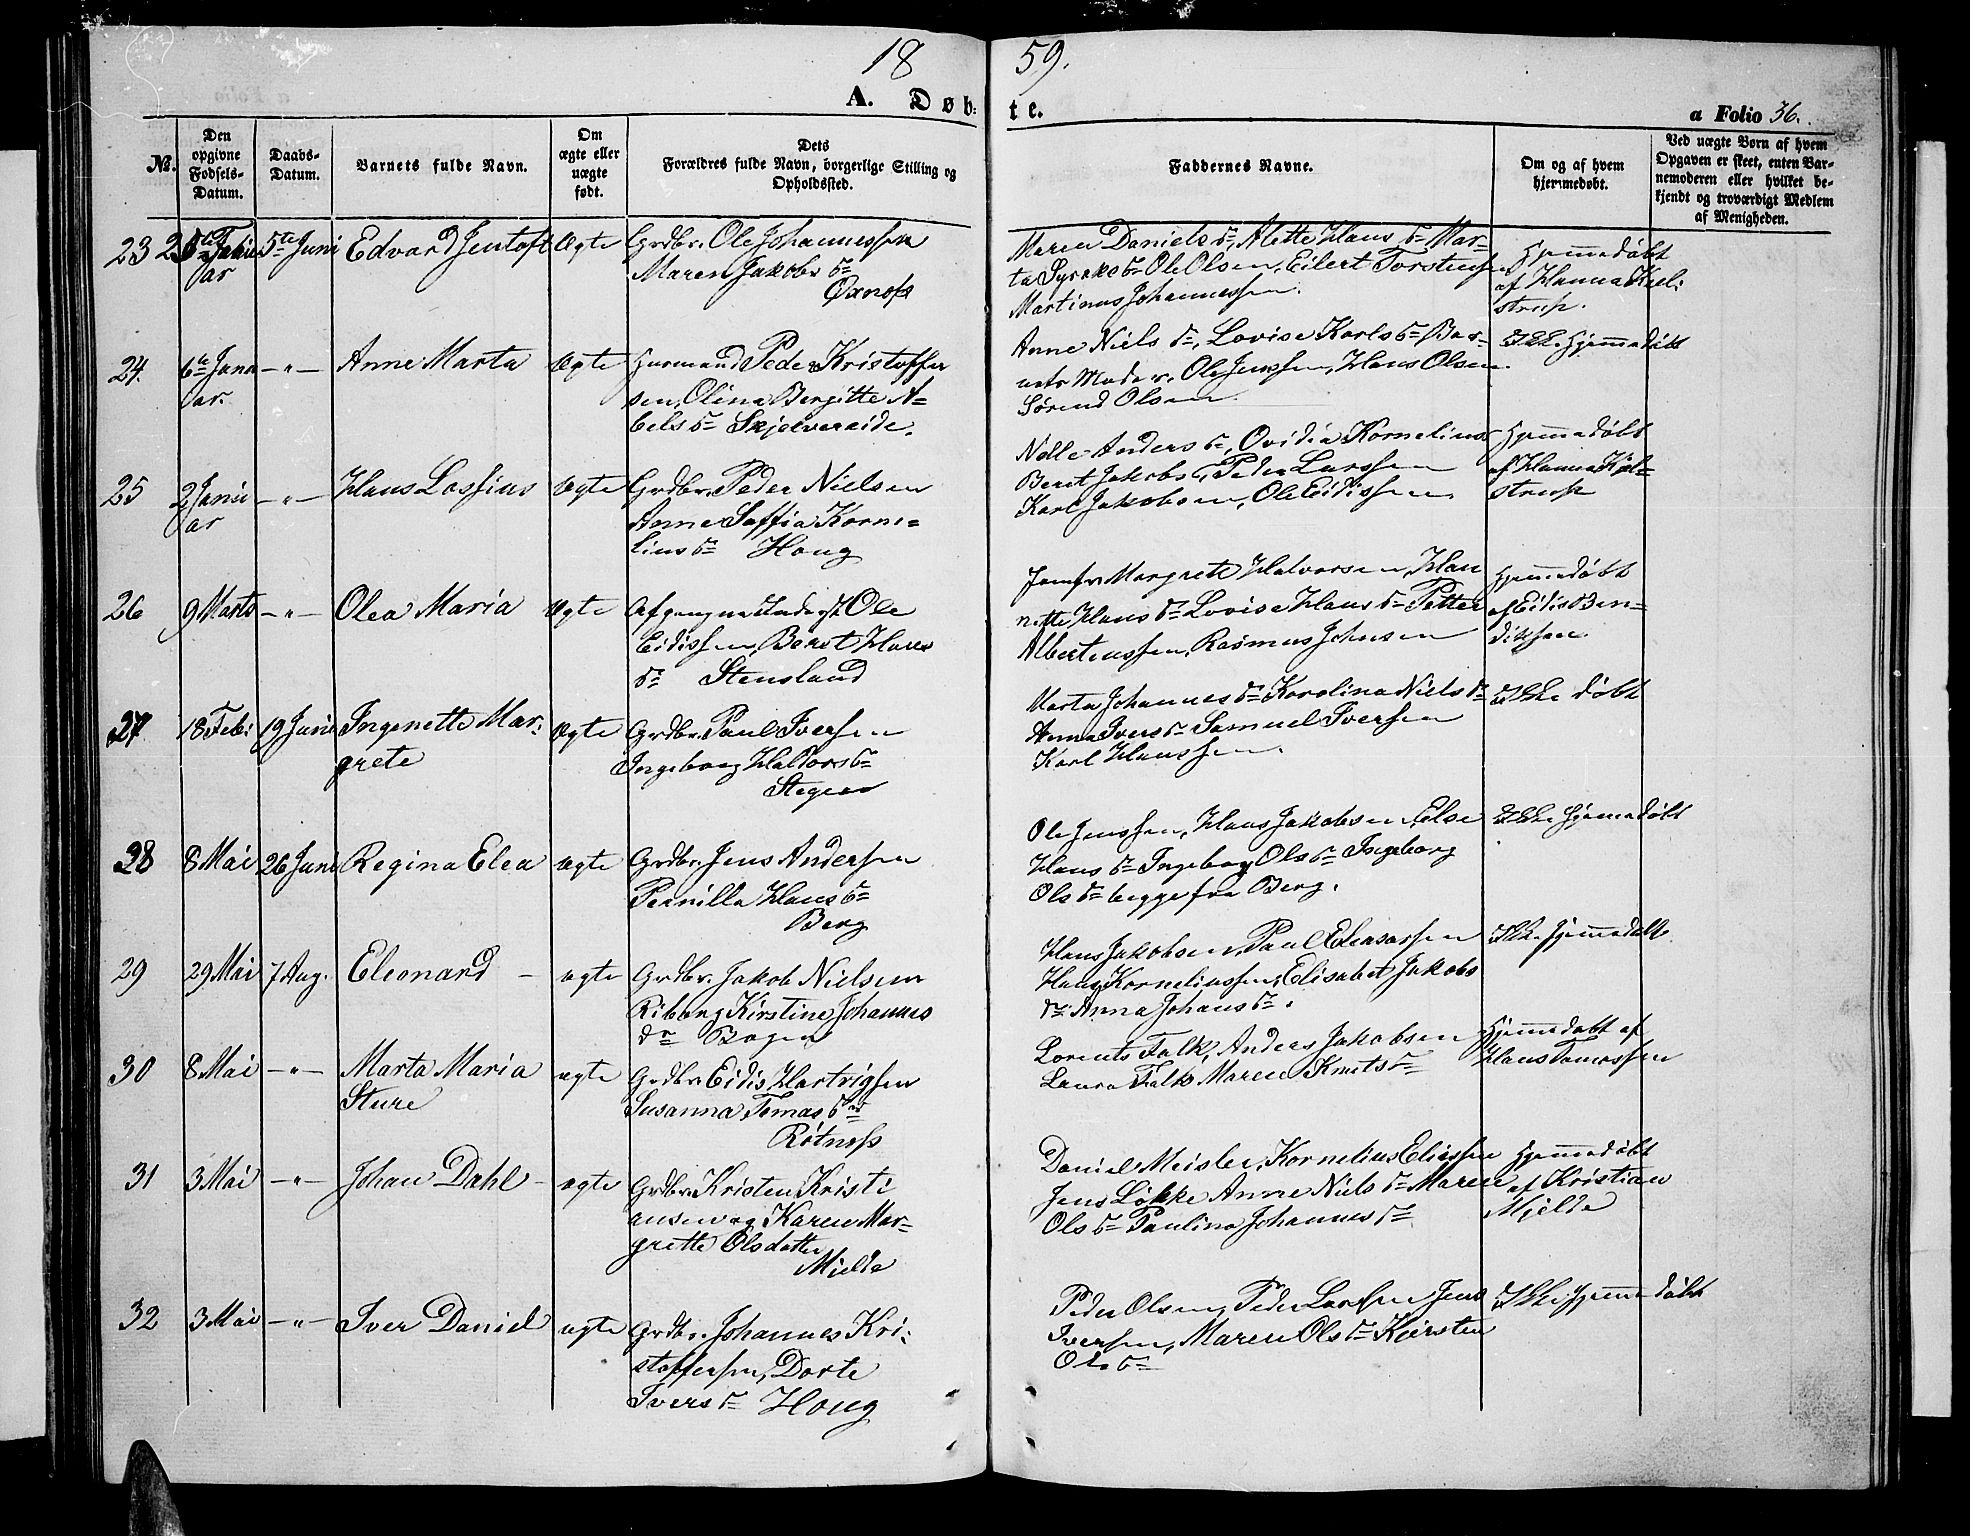 18 59.
A. Døb- te.
a Folio 36.
No.
Den opgivne Fødsels-Datum.
Daabs-Datum.
Barnets fulde Navn.
Om ægte eller uægte født.
Dets Forældres fulde Navn, borgerlige Stilling og Opholdssted.
Faddernes Navne.
Om og af hvem hjemmedøbt.
Ved uægte Børn af hvem Opgaven er skeet, enten Barnemoderen eller hvilket bekjendt og troværdigt Medlem af Menigheden.
23 5te Juni Edvard Jentoft Ægte Grdbr. Ole Johannessen
ar Maren Jakobs D=
Oxnæs
Maren Daniels D=, Alette Hans D= Mar-
ta Syraks D= Ole Olsen, Eilert Torstensen
Martinus Johannessen.
Hjemmedøbt
af Hanna Kjel-
strup.
24. 6te Janu -"- Anne Marta Ægte Huusmand Peder Kristoffer
ar. sen, Olina Bergitte A-
bels D= Skjelvareide.
Anne Niels D=, Lovise Karls D= Bar-
nets Moder, Ole Jenssen, Hans Olsen.
Sørend Olsen.
Ikke Hjemmedøbt
25 2 Janu -"- Hans Lossius Ægte Grdbr. Peder Nielsen
ar Anne Saffia Korne-
lius D= Houg
Nille Anders D=, Ovidia Kornelius
Beret Jakobs D, Peder Larssen
Karl Jakobsen, Ole Eidissen
Hjemmedøbt
af Hanna Kjel-
strup
26 9 Marts -"- Olea Maria Ægte Afgangne Ole
Eidissen, Beret Hans
D= Stensland
Jomfr Margrete Halvorsen, Han
nette Hans D= Lovise Hans D= Petter
Albertenssen, Rasmus Johnsen
Hjemmedøbt
af Eidis Ben-
diksen.
27 18 Feb: 19 Juni Ingenette Mar- Ægte Grdbr. Paul Iversen
grete Ingeborg Haldors D=
Stegen
Marta Johannes D= Karolina Niels D=
Anna Ivers D= Samuel Iversen
Karl Hanssen.
Ikke døbt
28 8 Mai 26 Juni Regina Elea Ægte Grdbr. Jens Andersen
Pernilla Hans D=
Berg
Ole Jenssen, Hans Jakobsen, Else
Hans D= Ingeborg Ols D= Ingeborg
Ols D= begge fra Berg.
Ikke Hjemmedøbt
29 29 Mai 7 Aug. Eleonard - ægte Grdbr. Jakob Nielsen
Riborg Kirstine Johannes
d= Bogen
Hans Jakobsen, Paul Eleasarsen
Hans Korneliussen, Elisabet Jakobs
D= Anna Johans D=.
Ikke hjemmedøbt
30 8 Mai -"- Marta Maria ægte Grdbr. Eidis Hartvigsen
Sture Susanna Tomas D=
Røtnæss
Lorents Falk, Anders Jakobsen
Laura Falk Maren Knuts D=
Hjemmedøbt af
Hans Tomassen
31 3 Mai -"- Johan Dahl - ægte Grdbr. Kristen Kristi
ansen og Karen Mar-
grette Olsdatter
Mjelde
Daniel Meisler, Kornelius Eliassen
Jens Løkke Anne Niels D= Maren
Ols D= Paulina Johannes D=
Hjemmedøbt
af Kristian
Mjelde
32 3 Mai -"- Iver Daniel ægte Grdbr. Johannes Kri-
stoffersen, Dorte
Ivers D= Houg
Peder Olsen, Peder Larssen Jens
Iversen, Maren Ols D= Kjersten
Ols D=
Ikke hjemmedøbt